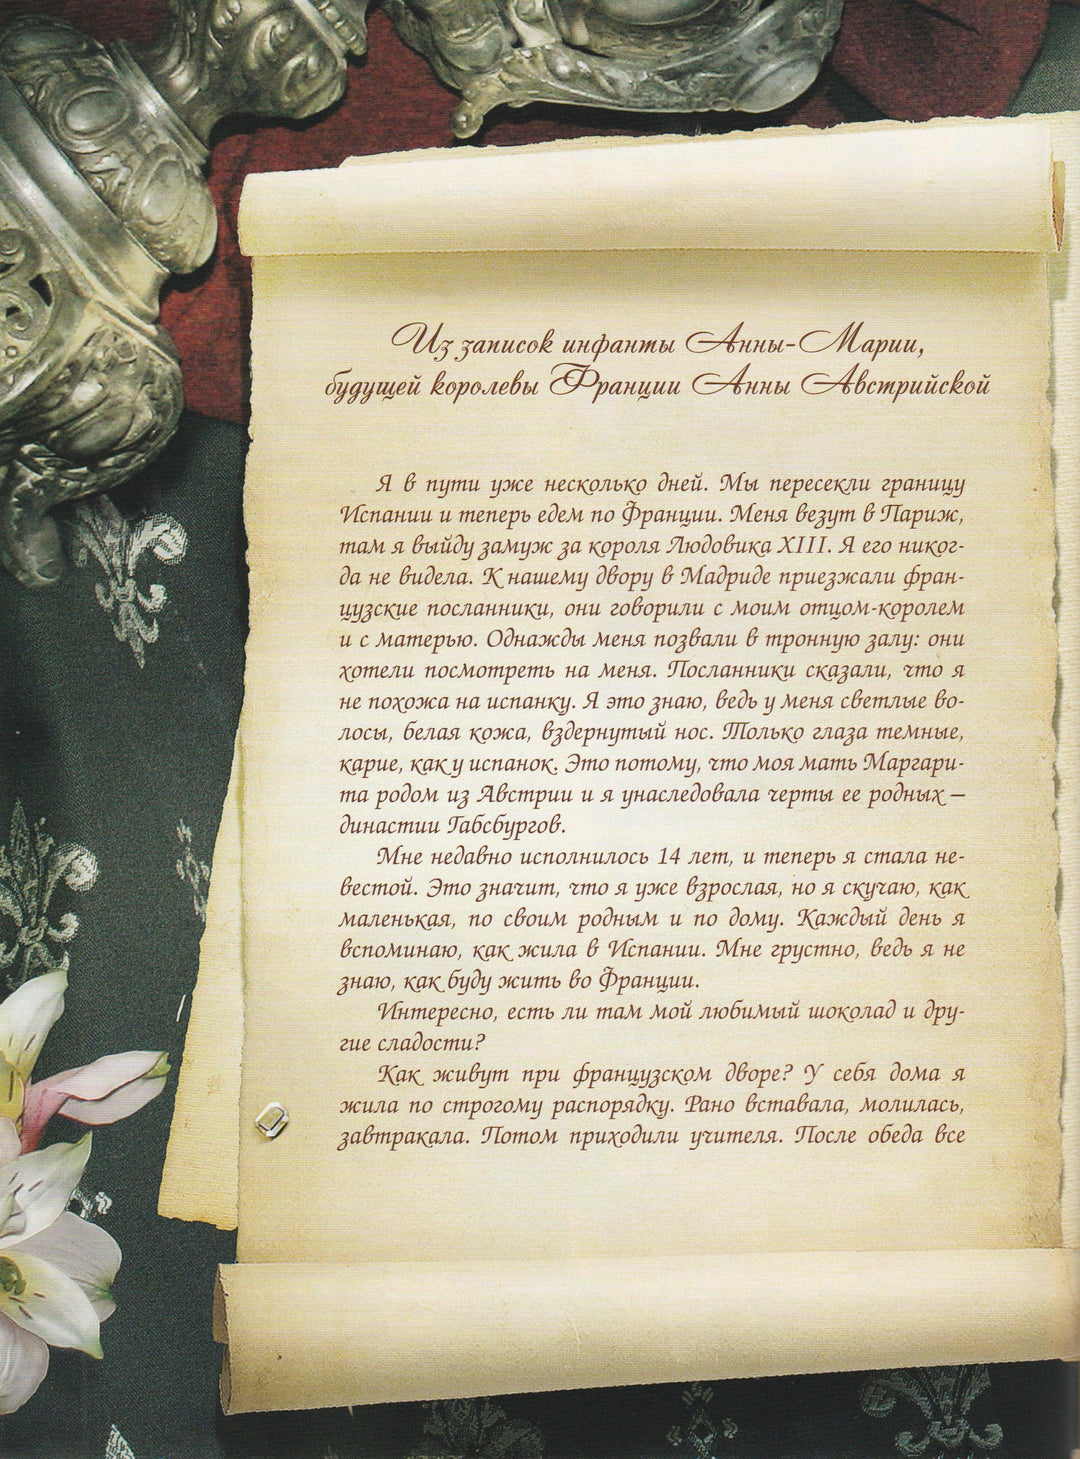 Из записок инфанты Анны-Марии,
будущей королевы Франции Анны Австрийской
Я в пути уже несколько дней. Мы пересекли границу
Испании и теперь едем по Франции. Меня везут в Париж,
там я выйду замуж за короля Людовика XIII. Я его никог-
да не видела. К нашему двору в Мадриде приезжали фран-
цузские посланники, они говорили с моим отцом-королем
и с матерью. Однажды меня позвали в тронную залу: они
хотели посмотреть на меня. Посланники сказали, что я
не похожа на испанку. Я это знаю, ведь у меня светлые во-
лосы, белая кожа, вздернутый нос. Только глаза темные,
карие, как у испанок. Это потому, что моя мать Маргари-
та родом из Австрии и я унаследовала черты ее родных –
династии Габсбургов.
Мне недавно исполнилось 14 лет, и теперь я стала не-
вестой. Это значит, что я уже взрослая, но я скучаю, как
маленькая, по своим родным и по дому. Каждый день я
вспоминаю, как жила в Испании. Мне грустно, ведь я не
знаю, как буду жить во Франции.
Интересно, есть ли там мой любимый шоколад и дру-
гие сладости?
Как живут при французском дворе? У себя дома я
жила по строгому распорядку. Рано вставала, молилась,
завтракала. Потом приходили учителя. После обеда все